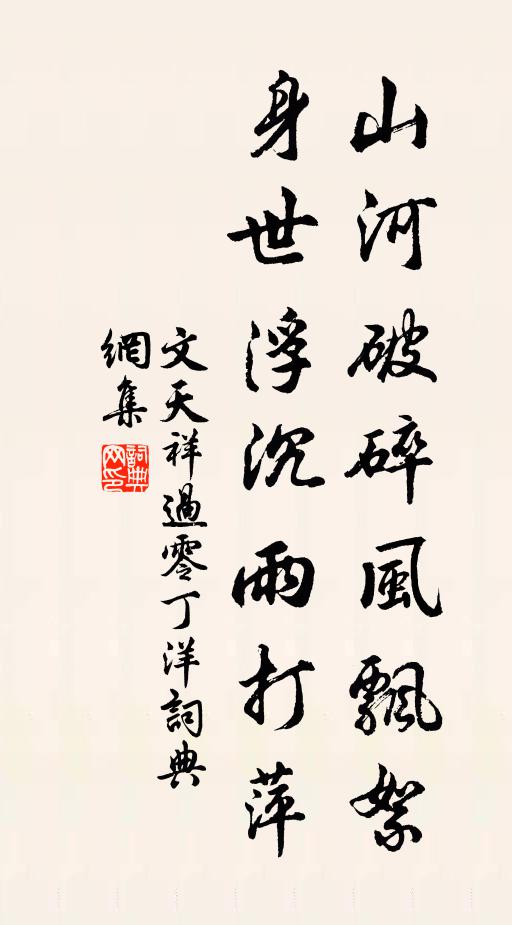 山河破碎風飄絮
身世浮沉雨打萍
文天祥過零丁洋詞典
網集
詞典网印